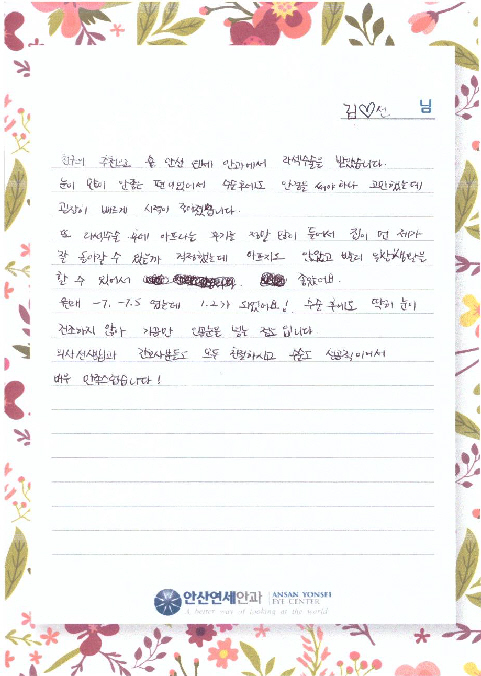 김♡선 님
친구의 추천으로 안산 연세 안과에서 라섹수술을 받았습니다.
눈이 많이 안좋은 편이었어서 수술후에도 안경을 써야하나 고민했는데
굉장히 빠르게 시력이 좋아졌습니다.
또 라섹수술 후에 아프다는 후기를 정말 많이 들어서 집이 먼 제가
잘 돌아갈 수 있을까 걱정했는데 아프지도 않았고 빨리 일상생활을
할 수 있어서 좋았어요.
원래 -7, -7.5 였는데 1.2가 되었어요! 수술 후에도 딱히 눈이
건조하지 않아 가끔만 인공눈물 넣는 정도입니다.
의사선생님과 간호사분들도 모두 친절하시고 수술도 성공적이어서
매우 만족스럽습니다!
안산연세안과 ANSAN YONSEI
EYE CENTER
A better way of looking at the world